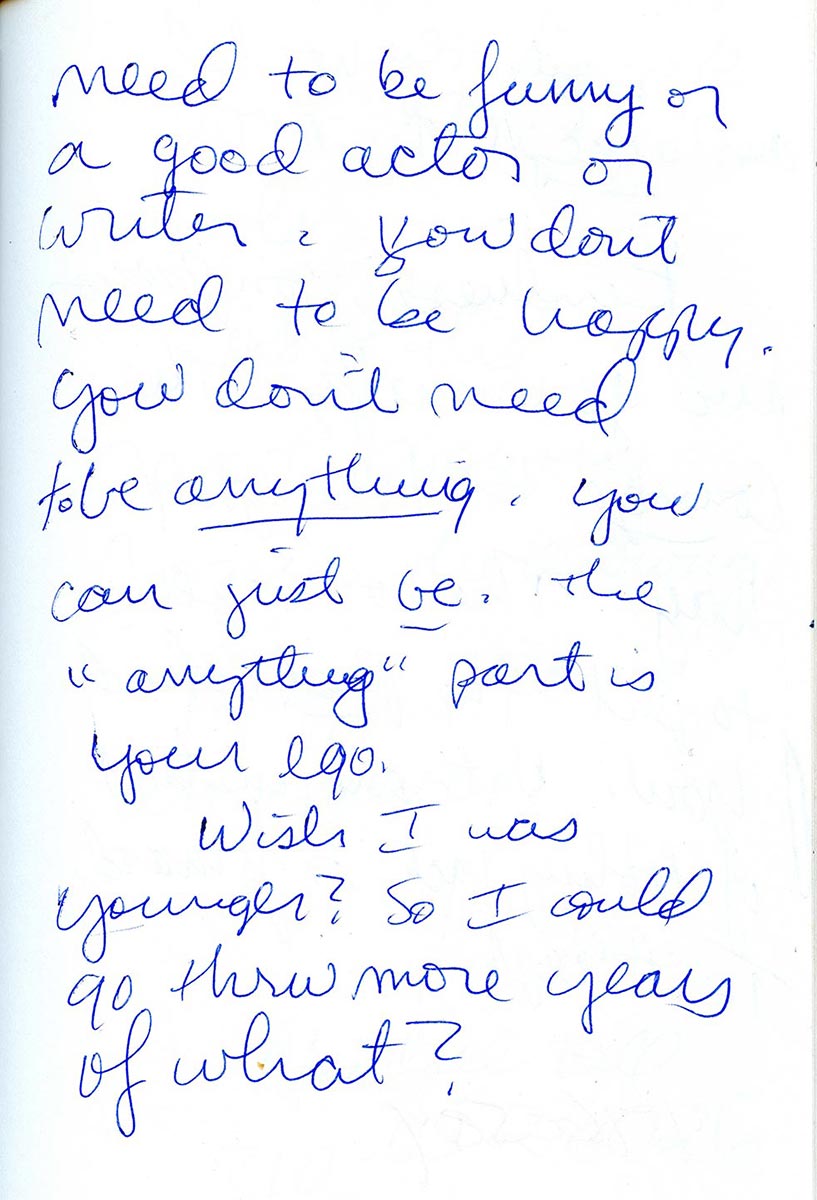 need to be funny or
a good actor or
writer. You don't
need to be happy.
You don't need
to be anything. You
can just be. The
"anything" part is
your ego.
Wish I was
younger? So I could
go thru more years
of what?